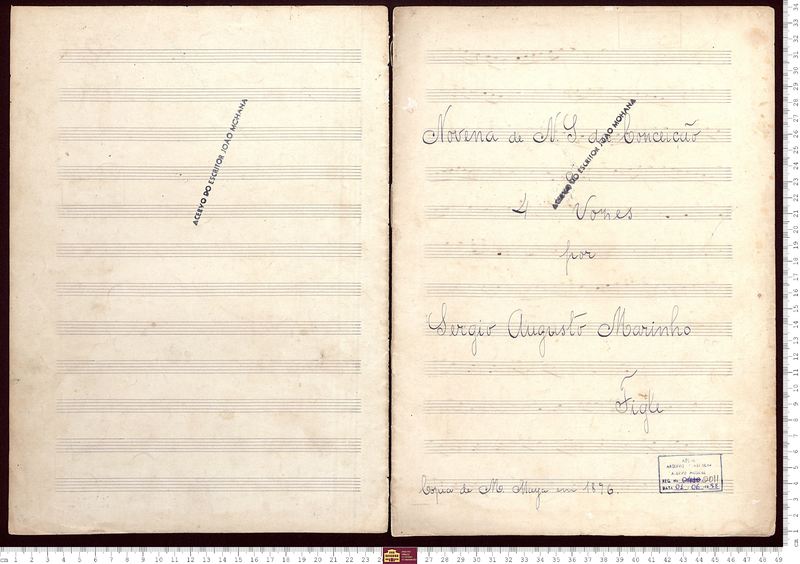 ACERVO DO ESCRITOR JOÃO MOHANA
Novena de N. S. da Conceicão
ACERVO DO ESCRITOR JOÃO MOHANA
a
4 Vozes
por
Sergio Augusto Marinho
Copia de M. Maya em 1896.
REG. Nº 0011
DATA 02 06